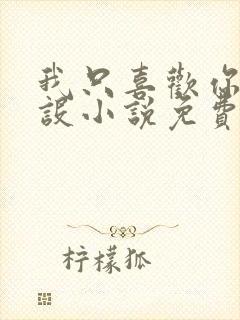 我只喜歡你
設小說免費
柠檬狐